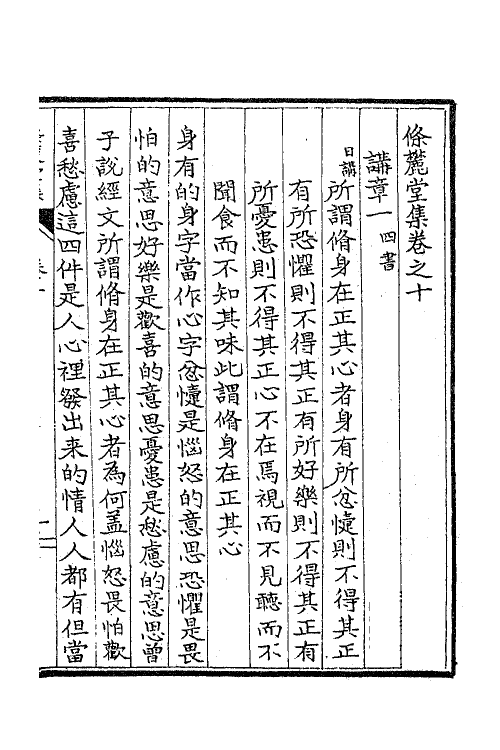 條麓堂集卷之十
講章一 四書
日講
所謂脩身在正其心者身有所忿懥則不得其正
有所恐懼則不得其正有所好樂則不得其正有
所憂患則不得其正心不在焉視而不見聽而不
聞食而不知其味此謂脩身在正其心
身有的身字當作心字忿懥是惱怒的意思恐懼是畏
怕的意思好樂是歡喜的意思憂患是愁慮的意思曾
子說經文所謂脩身在正其心者為何盖惱怒畏怕歡
喜愁慮這四件是人心裡發出来的情人人都有但當